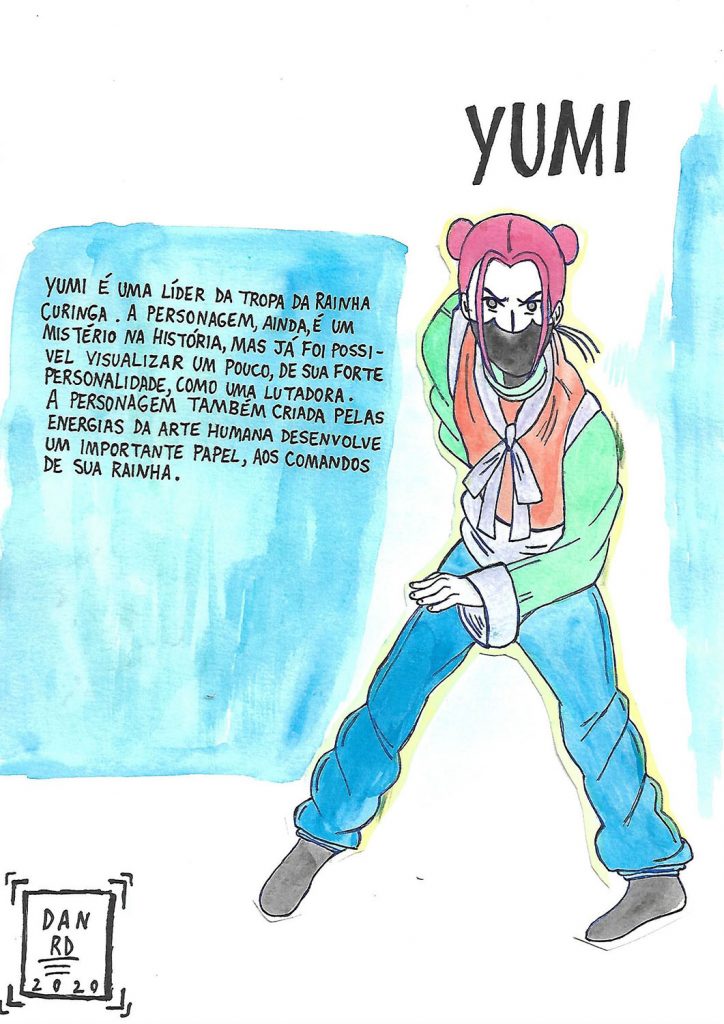 YUMI
YUMI É UMA LÍDER DA TROPA DA RAINHA
CURINGA. A PERSONAGEM, AINDA, É UM
MISTÉRIO NA HISTÓRIA, MAS JÁ FOI POSSI-
VEL VISUALIZAR UM POUCO, DE SUA FORTE
PERSONALIDADE, COMO UMA LUTADORA.
A PERSONAGEM TAMBÉM CRIADA PELAS
ENERGIAS DA ARTE HUMANA DESENVOLVE
UM IMPORTANTE PAPEL, AOS COMANDOS
DE SUA RAINHA.
DAN
RD
2020